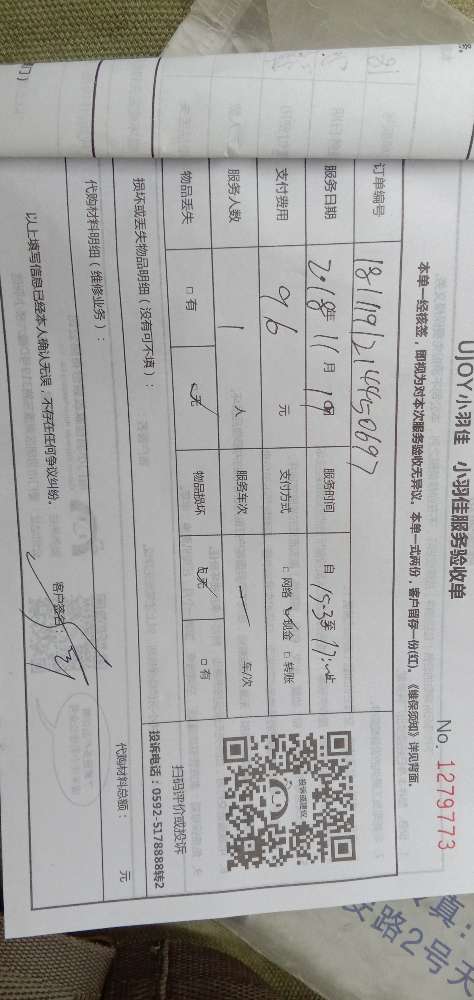 UJOY小羽佳 小羽佳服务验收单
No. 1279773
本单一经核签，即视为对本次服务验收无异议。本单一式两份，客户留存一份(红)。《维保须知》详见背面。
订单编号
服务日期 2018年 11月 19日 服务时间 自 15:3 至 17: 止
支付费用 96 元 支付方式 □网络 ☑现金 □转账
服务人数 1 人 服务车次 — 车/次
物品丢失 □有 ☑无 物品损坏 ☑无 □有
损坏或丢失物品明细（没有可不填）：
代购材料明细（维修业务）： 代购材料总额： 元
以上填写信息已经本人确认无误，不存在任何争议纠纷。
客户签名：
投诉或建议
扫码评价或投诉
投诉电话：0592-5178888转2
真：
路2号天